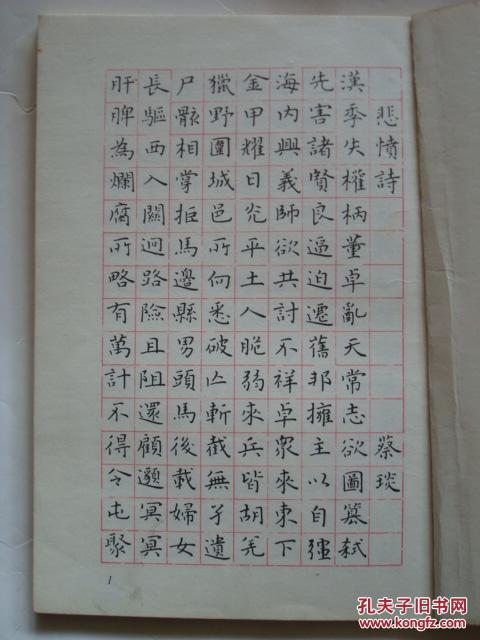 悲憤詩 蔡琰
漢季失權柄董卓亂天常志欲圖篡弒
先害諸賢良逼迫遷舊邦擁主以自強
海內興義師欲共討不祥卓眾來東下
金甲耀日光平土人脆弱來兵皆胡羌
獵野圍城邑所向悉破亡斬截無孑遺
尸骸相掌拒馬邊縣男頭馬後載婦女
長驅西入關迥路險且阻還顧邈冥冥
肝脾為爛腐所略有萬計不得令屯聚
1
孔夫子旧书网
www.kongfz.com